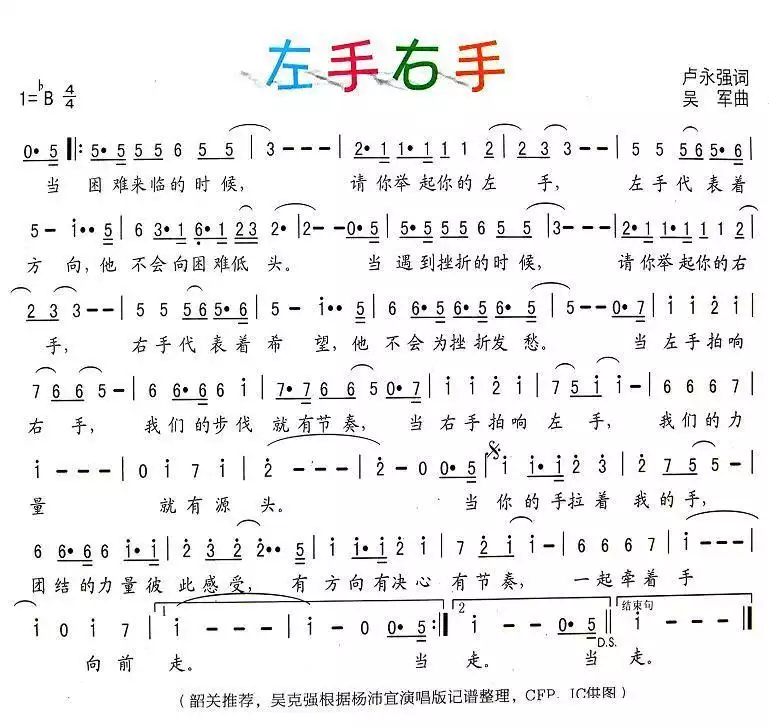 左手右手
1=♭B 4/4
卢永强词
吴 军曲
0·5 ‖: 5·5 5 5 6 5 5 | 3 - - - | 2·1 1·1 1 1 2 | 2 3 3 - - | 5 5 5 6 5·6 |
当 困难来临的时候, 请你举起你的左 手, 左手代表着
5 - i·· 5 | 6 3·1 6·1 2 3 | 2· - | 2 - - 0·5 | 5·5 5 5 6 5 5 | 3 - - - | 2·1 1·1 1 1 2 |
方向,他 不会向困难低头。 当 遇到挫折的时候, 请你举起你的右
2 3 3 - - | 5 5 5 6 5·6 | 5 - i·· 5 | 6 6·5 6·5 6 5 | 5 - - 0·7 | i i 2 i |
手, 右手代表着希 望,他 不会为挫折发愁。 当 左手拍响
7 6 6 5 - | 6 6·6 6 i | 7·7 6 6 5 0·7 | i i 2 i | 7 5 i i - | 6 6 6 6 |
右 手, 我们的步伐 就有节奏, 当 右手拍响 左手, 我们的力
i - - - | 0 i 7 i | 2 - - - | 2 - 0 0·5 | i i·i 2 3 | 2 7 5 5 - |
量 就有源 头。 当 你的手拉着 我的手,
6 6·6 6 i·i | 2 3 2 2·· 5 | i i·i i i | 7 2 i i - | 6 6 6 7 | i - - - |
团结的力量彼此感受, 有 方向有决心 有节奏, 一起牵着 手
i 0 i 7 | 1 i - - - | i - - 0·5 :‖ 2 i - - 0·5 ‖ D.S. 结束句 i - - - ‖
向前 走。 当 走。 当 走。
(韶关推荐,吴克强根据杨沛宜演唱版记谱整理,CFP、IC供图)